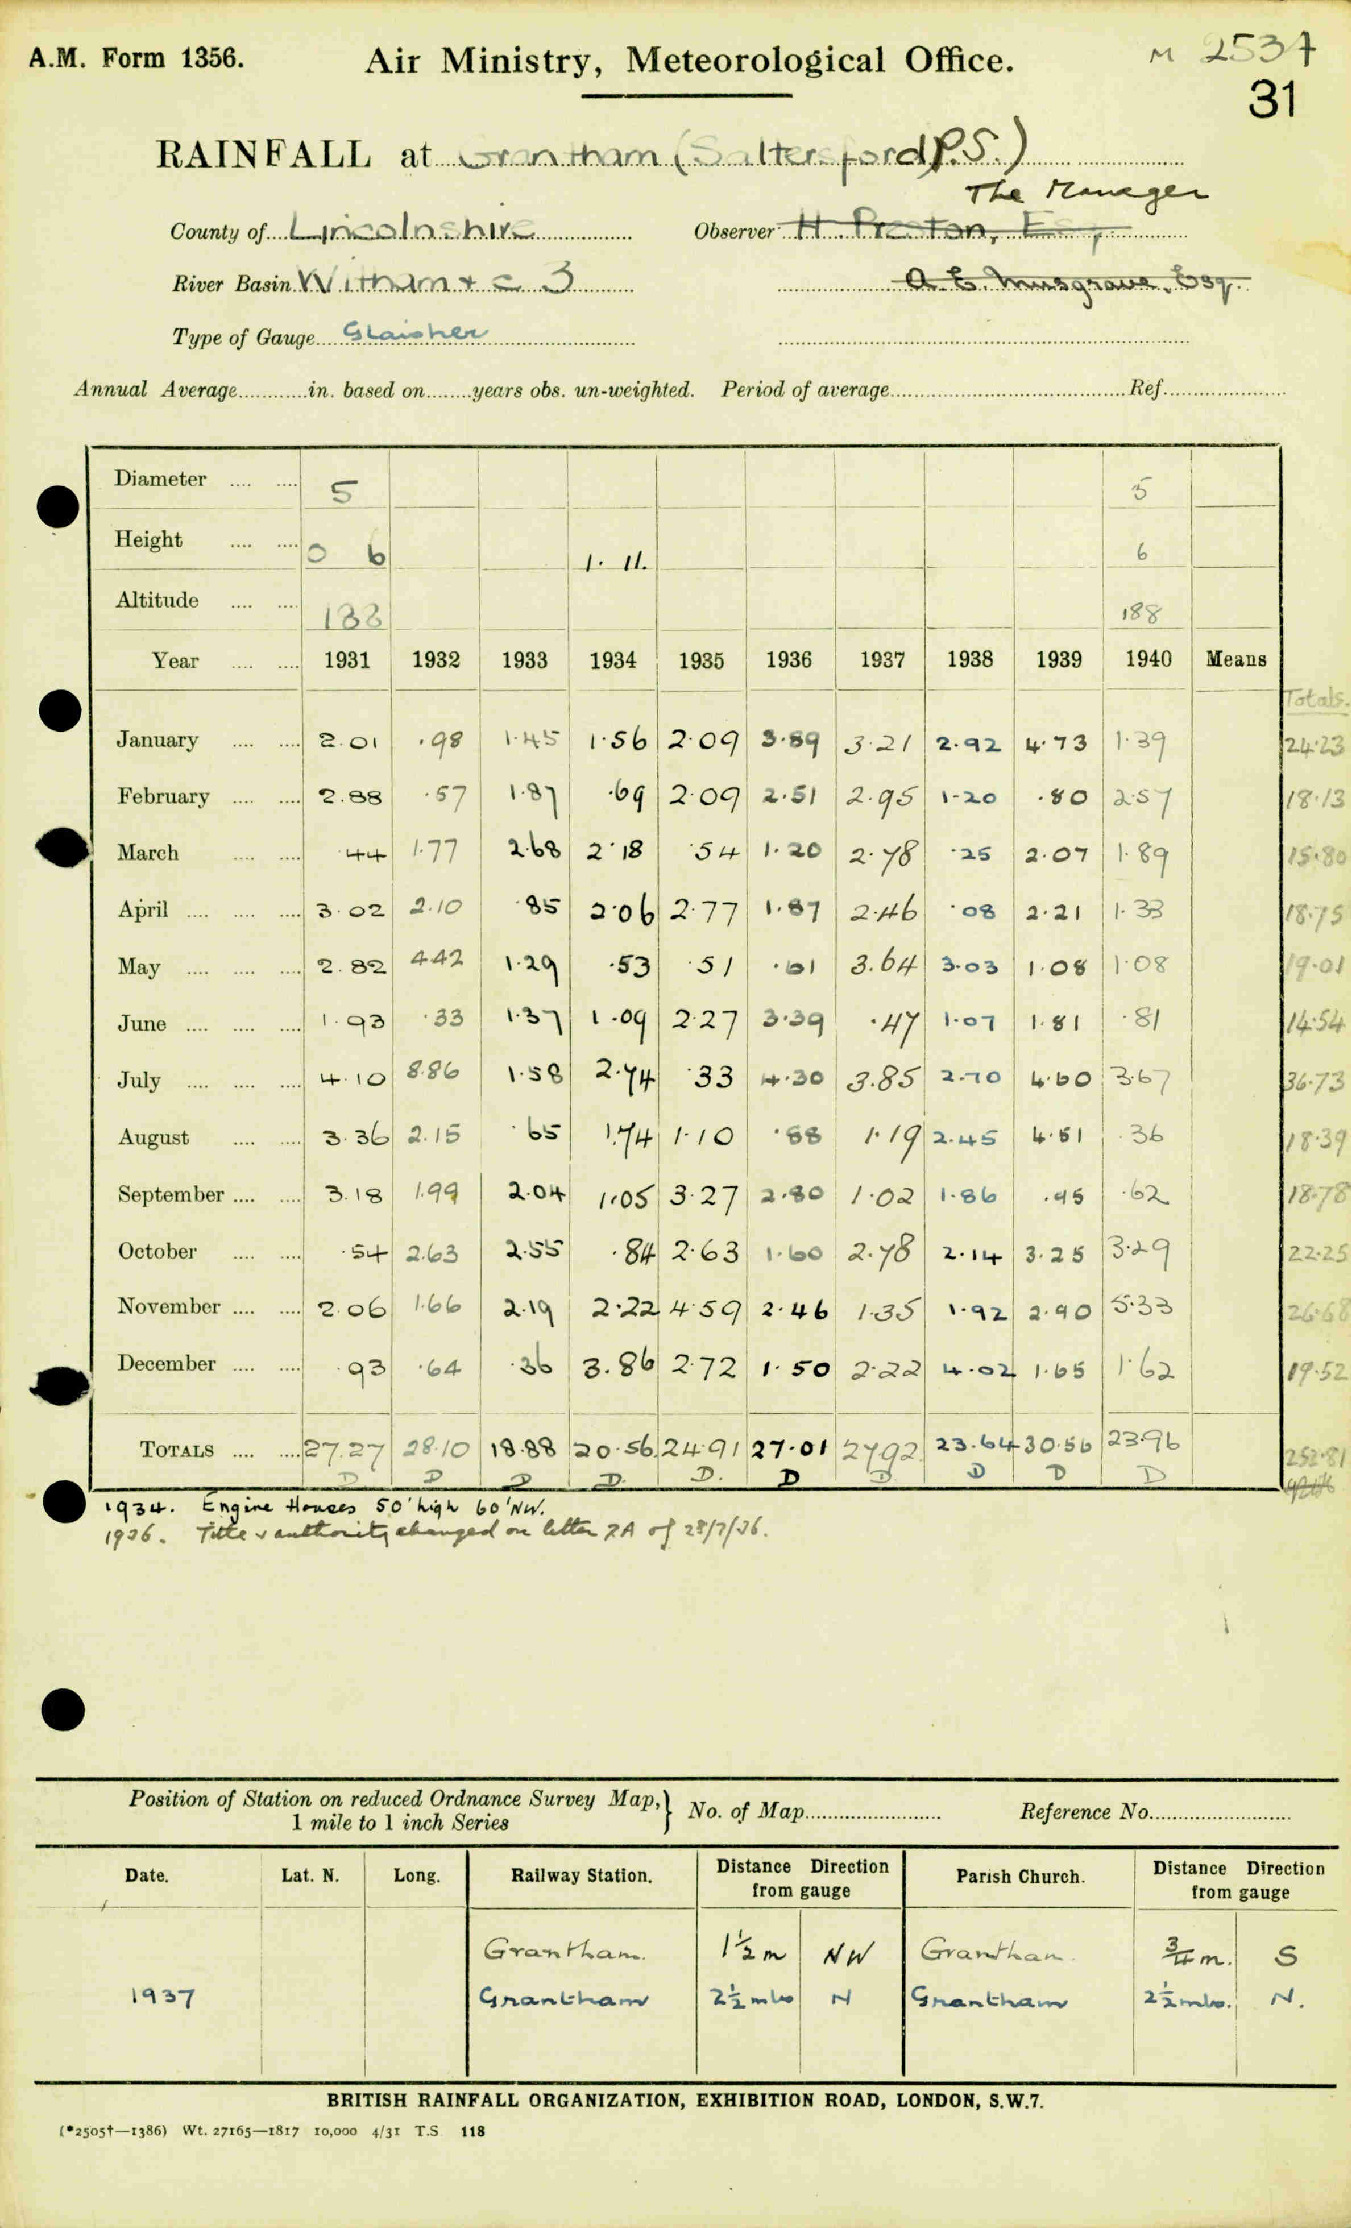 A.M. Form 1356.
Air Ministry, Meteorological Office.
M 2537
31
RAINFALL at Grantham (Saltersford P.S.)
The Manager
County of Lincolnshire Observer H. Preston, Esq.
River Basin Witham &c 3 A. E. Musgrave, Esq.
Type of Gauge Glaisher
Annual Average in. based on years obs. un-weighted. Period of average Ref.
Diameter 5 5
Height 0 6 1. 11. 6
Altitude 188 188
Year 1931 1932 1933 1934 1935 1936 1937 1938 1939 1940 Means
Totals.
January 2.01 .98 1.45 1.56 2.09 3.89 3.21 2.92 4.73 1.39 24.23
February 2.88 .57 1.87 .69 2.09 2.51 2.95 1.20 .80 2.57 18.13
March .44 1.77 2.68 2.18 .54 1.20 2.78 .25 2.07 1.89 15.80
April 3.02 2.10 .85 2.06 2.77 1.87 2.46 .08 2.21 1.33 18.75
May 2.82 4.42 1.29 .53 .51 .61 3.64 3.03 1.08 1.08 19.01
June 1.93 .33 1.37 1.09 2.27 3.39 .47 1.07 1.81 .81 14.54
July 4.10 8.86 1.58 2.74 .33 4.30 3.85 2.70 4.60 3.67 36.73
August 3.36 2.15 .65 1.74 1.10 .88 1.19 2.45 4.51 .36 18.39
September 3.18 1.99 2.04 1.05 3.27 2.80 1.02 1.86 .95 .62 18.78
October .54 2.63 2.55 .84 2.63 1.60 2.78 2.14 3.25 3.29 22.25
November 2.06 1.66 2.19 2.22 4.59 2.46 1.35 1.92 2.90 5.33 26.68
December .93 .64 .36 3.86 2.72 1.50 2.22 4.02 1.65 1.62 19.52
TOTALS 27.27 28.10 18.88 20.56 24.91 27.01 27.92 23.64 30.56 23.96 252.81
D D D D. D. D D D D D
1934. Engine Houses 50' high 60' NW.
1936. Title & authority changed on letter RA of 28/7/36.
Position of Station on reduced Ordnance Survey Map,
1 mile to 1 inch Series
No. of Map Reference No.
Date. Lat. N. Long. Railway Station. Distance Direction from gauge Parish Church. Distance Direction from gauge
Grantham. 1½ m NW Grantham. ¾ m. S
1937 Grantham 2½ mls N Grantham 2½ mls. N.
BRITISH RAINFALL ORGANIZATION, EXHIBITION ROAD, LONDON, S.W.7.
(*2505†—1386) Wt. 27165—1817 10,000 4/31 T.S 118